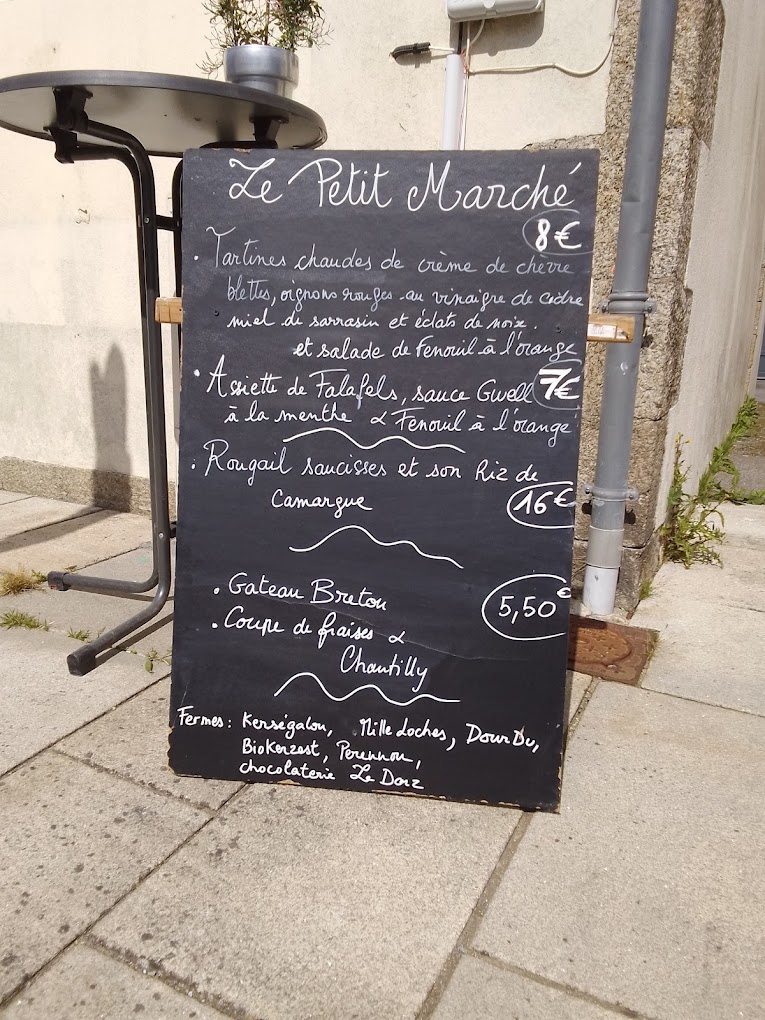 Le Petit Marché
8€
. Tartines chaudes de crème de chèvre
blettes, oignons rouges au vinaigre de cidre
miel de sarrasin et éclats de noix.
et salade de Fenouil à l'orange
. Assiette de Falafels, sauce Gwell 7€
à la menthe & Fenouil à l'orange
. Rougail saucisses et son Riz de
Camargue 16€
. Gateau Breton 5,50€
. Coupe de fraises &
Chantilly
Fermes : Kerségalou, Mille Loches, DourDu,
BioKerzest, Perennou,
chocolaterie Le Dorz